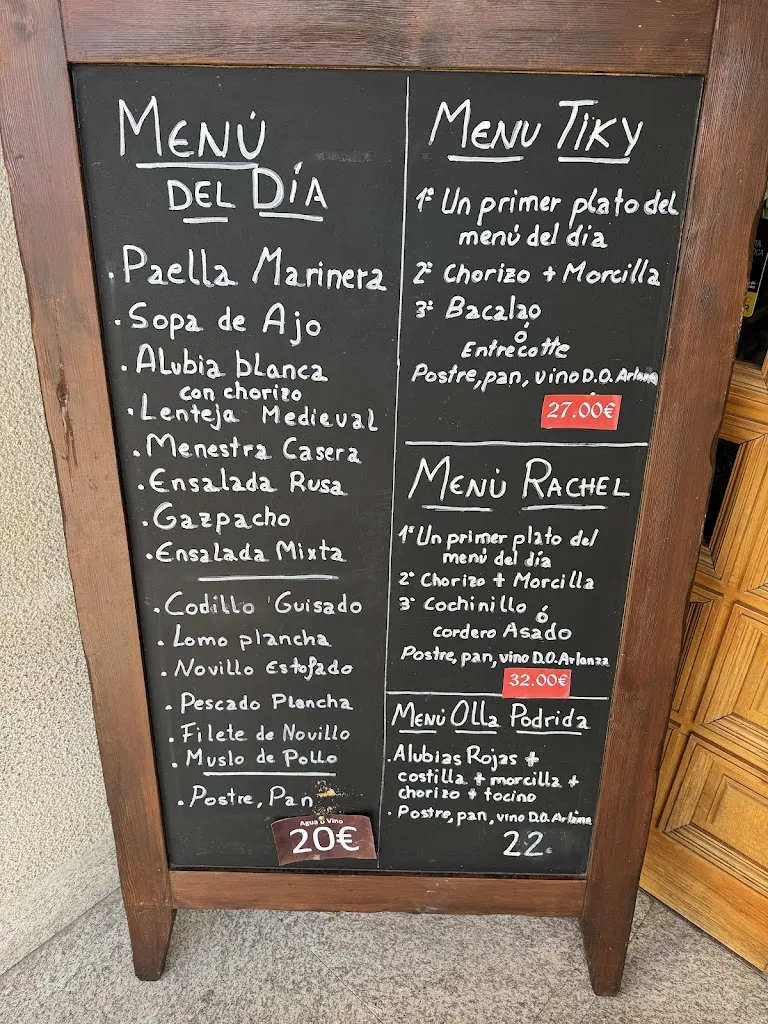 MENÚ
DEL DÍA
. Paella Marinera
. Sopa de Ajo
. Alubia blanca
con chorizo
. Lenteja Medieval
. Menestra Casera
. Ensalada Rusa
. Gazpacho
. Ensalada Mixta
. Codillo Guisado
. Lomo plancha
. Novillo Estofado
. Pescado Plancha
. Filete de Novillo
. Muslo de Pollo
. Postre, Pan
Agua o Vino
20€
MENU TIKY
1º Un primer plato del
menú del dia
2º Chorizo + Morcilla
3º Bacalao
ó
Entrecotte
Postre, pan, vino D.O. Arlanza
27.00€
MENÚ RACHEL
1º Un primer plato del
menú del día
2º Chorizo + Morcilla
3º Cochinillo ó
cordero Asado
Postre, pan, vino D.O. Arlanza
32.00€
MENÚ OLLA PODRIDA
. Alubias Rojas +
costilla + morcilla +
chorizo + tocino
. Postre, pan, vino D.O. Arlanza
22.